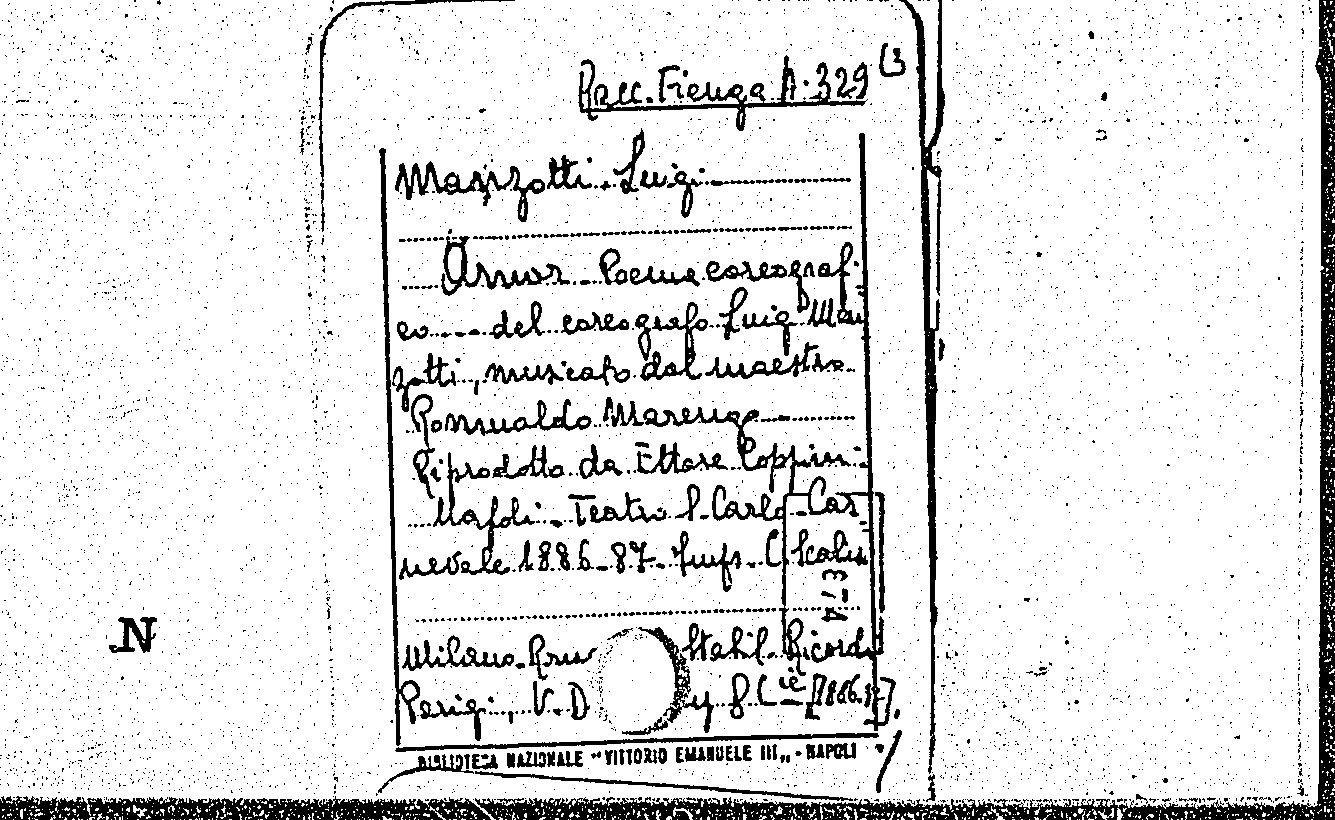 Racc. Fienga A. 329 (3
Manzotti. Luigi
Amor. Poema coreografi
co --- del coreografo Luigi Man
zotti, musicato dal maestro
Romualdo Marengo
Riprodotto da Ettore Coppini.
Napoli. Teatro S. Carlo. Car
nevale 1886-87. Impr. C. Scalis
E74
Milano. Rom Stabil. Ricordi
Parigi, V. D y & C ie [1886.87].
N.
BIBLIOTECA NAZIONALE "VITTORIO EMANUELE III„ - NAPOLI